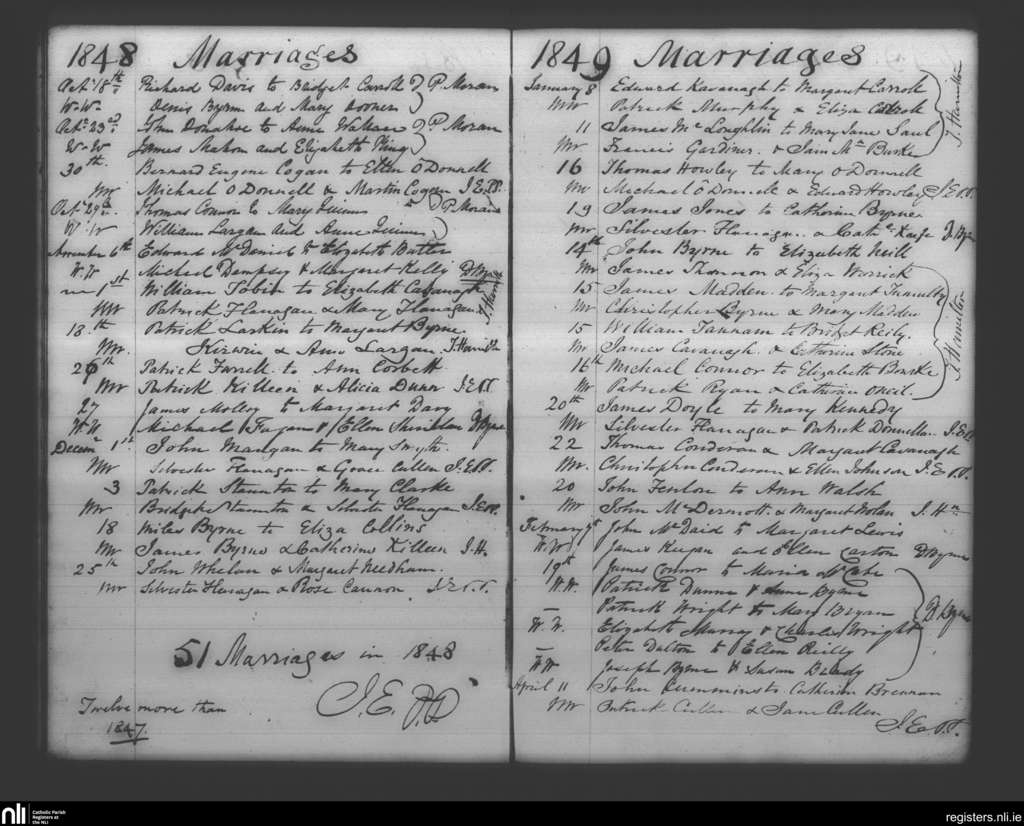 1848 Marriages
Octr 18th Richard Davis to Bridget Carroll P. Moran
W.W. Denis Byrne and Mary
Octr 23rd John Donahoe to Anne P. Moran
W.W. James Mahon and Elizabeth King
30th Bernard Eugene Cogan to Ellen O'Donnell
Mr Michael O'Donnell & Martin Cogan J.E.P.P.
Octr 29th Thomas Connor to Mary P. Moran
W.W. William Largan and Anne
November 6th Edward McDaniel & Elizabeth Butler
W.W. Michael Dempsey & Margaret Kelly D. Byrne
1st William Tobin to Elizabeth Cavanagh
Mr Patrick Flanagan & Mary Flanagan J. Hamilton
18th Patrick Larkin to Margaret Byrne
Mr. Kirwin & Anne Largan J. Hamilton
Patrick Farrell to Ann Corbett
Mr Patrick Killeen & Alicia Dunn J.E.P.P.
27 James Molloy to Margaret Davy
W.W. Michael Fagan & Ellen Sheridan D Byrne
Decem 1st John Mangan to Mary Smyth
Mr Silvester Flanagan & Grace Cullen J.E.P.P.
3 Patrick Staunton to Mary Clarke
Mr Bridget Staunton & Flanagan J.E.P.P.
18 Miles Byrne to Eliza Collins
Mr James Byrne & Catherine Killeen J.H.
25th John Whelan & Margaret Needham
Mr Silvester Flanagan & Rose Cannon J.E.P.P.
51 Marriages in 1848
J.E. P.P.
Twelve more than
1847.
1849 Marriages
January 8 Edward Kavanagh to Margaret Carroll
Mr Patrick Murphy & Eliza Carroll
11 James McLoughlin to Mary Jane Saul J. Hamilton
Mr Francis Gardiner &
16 Thomas Howley to Mary O'Donnell
Mr Michael O'Donnell & Edward Howley J.E.P.P.
19 James Jones to Catherine Byrne
Mr Silvester Flanagan & Cathe Keefe D. Byrne
14th John Byrne to Elizabeth Neill
Mr James Shannon & Eliza Warrick
15 James Madden to Margaret
Mr Christopher Byrne & Mary Madden
15 William Fannam to Bridget Reily J. Hamilton
Mr James Cavanagh & Catherine Stone
16th Michael Connor to Elizabeth Bourke
Mr Patrick Ryan & Catherine Oneil
20th James Doyle to Mary Kennedy
Mr Silvester Flanagan & Patrick Donnella J.E.P.P.
22 Thomas Conderan & Margaret Cavanagh
Mr. Christopher Conderan & Ellen Johnson J.E.P.P.
20 John Fenlon to Ann Walsh
Mr John McDermott & Margaret Nolan J. Hn
February John McDaid to Margaret Lewis
W.W. James Keegan and Ellen Carton D Byrne
19th James Connor to Maria McCabe
W.W. Patrick Dunne & Anne Byrne
— Patrick Wright to Mary Bryan
W.W. Elizabeth Murray & Charles Wright D. Byrne
— Peter Dalton to Ellen Reilly
W.W. Joseph Byrne & Susan Brady
April 11 John Cummins to Catherine Brennan
Mr Patrick Cullen & Jane Cullen
J.E.P.P.
nli Catholic Parish Registers at the NLI
registers.nli.ie